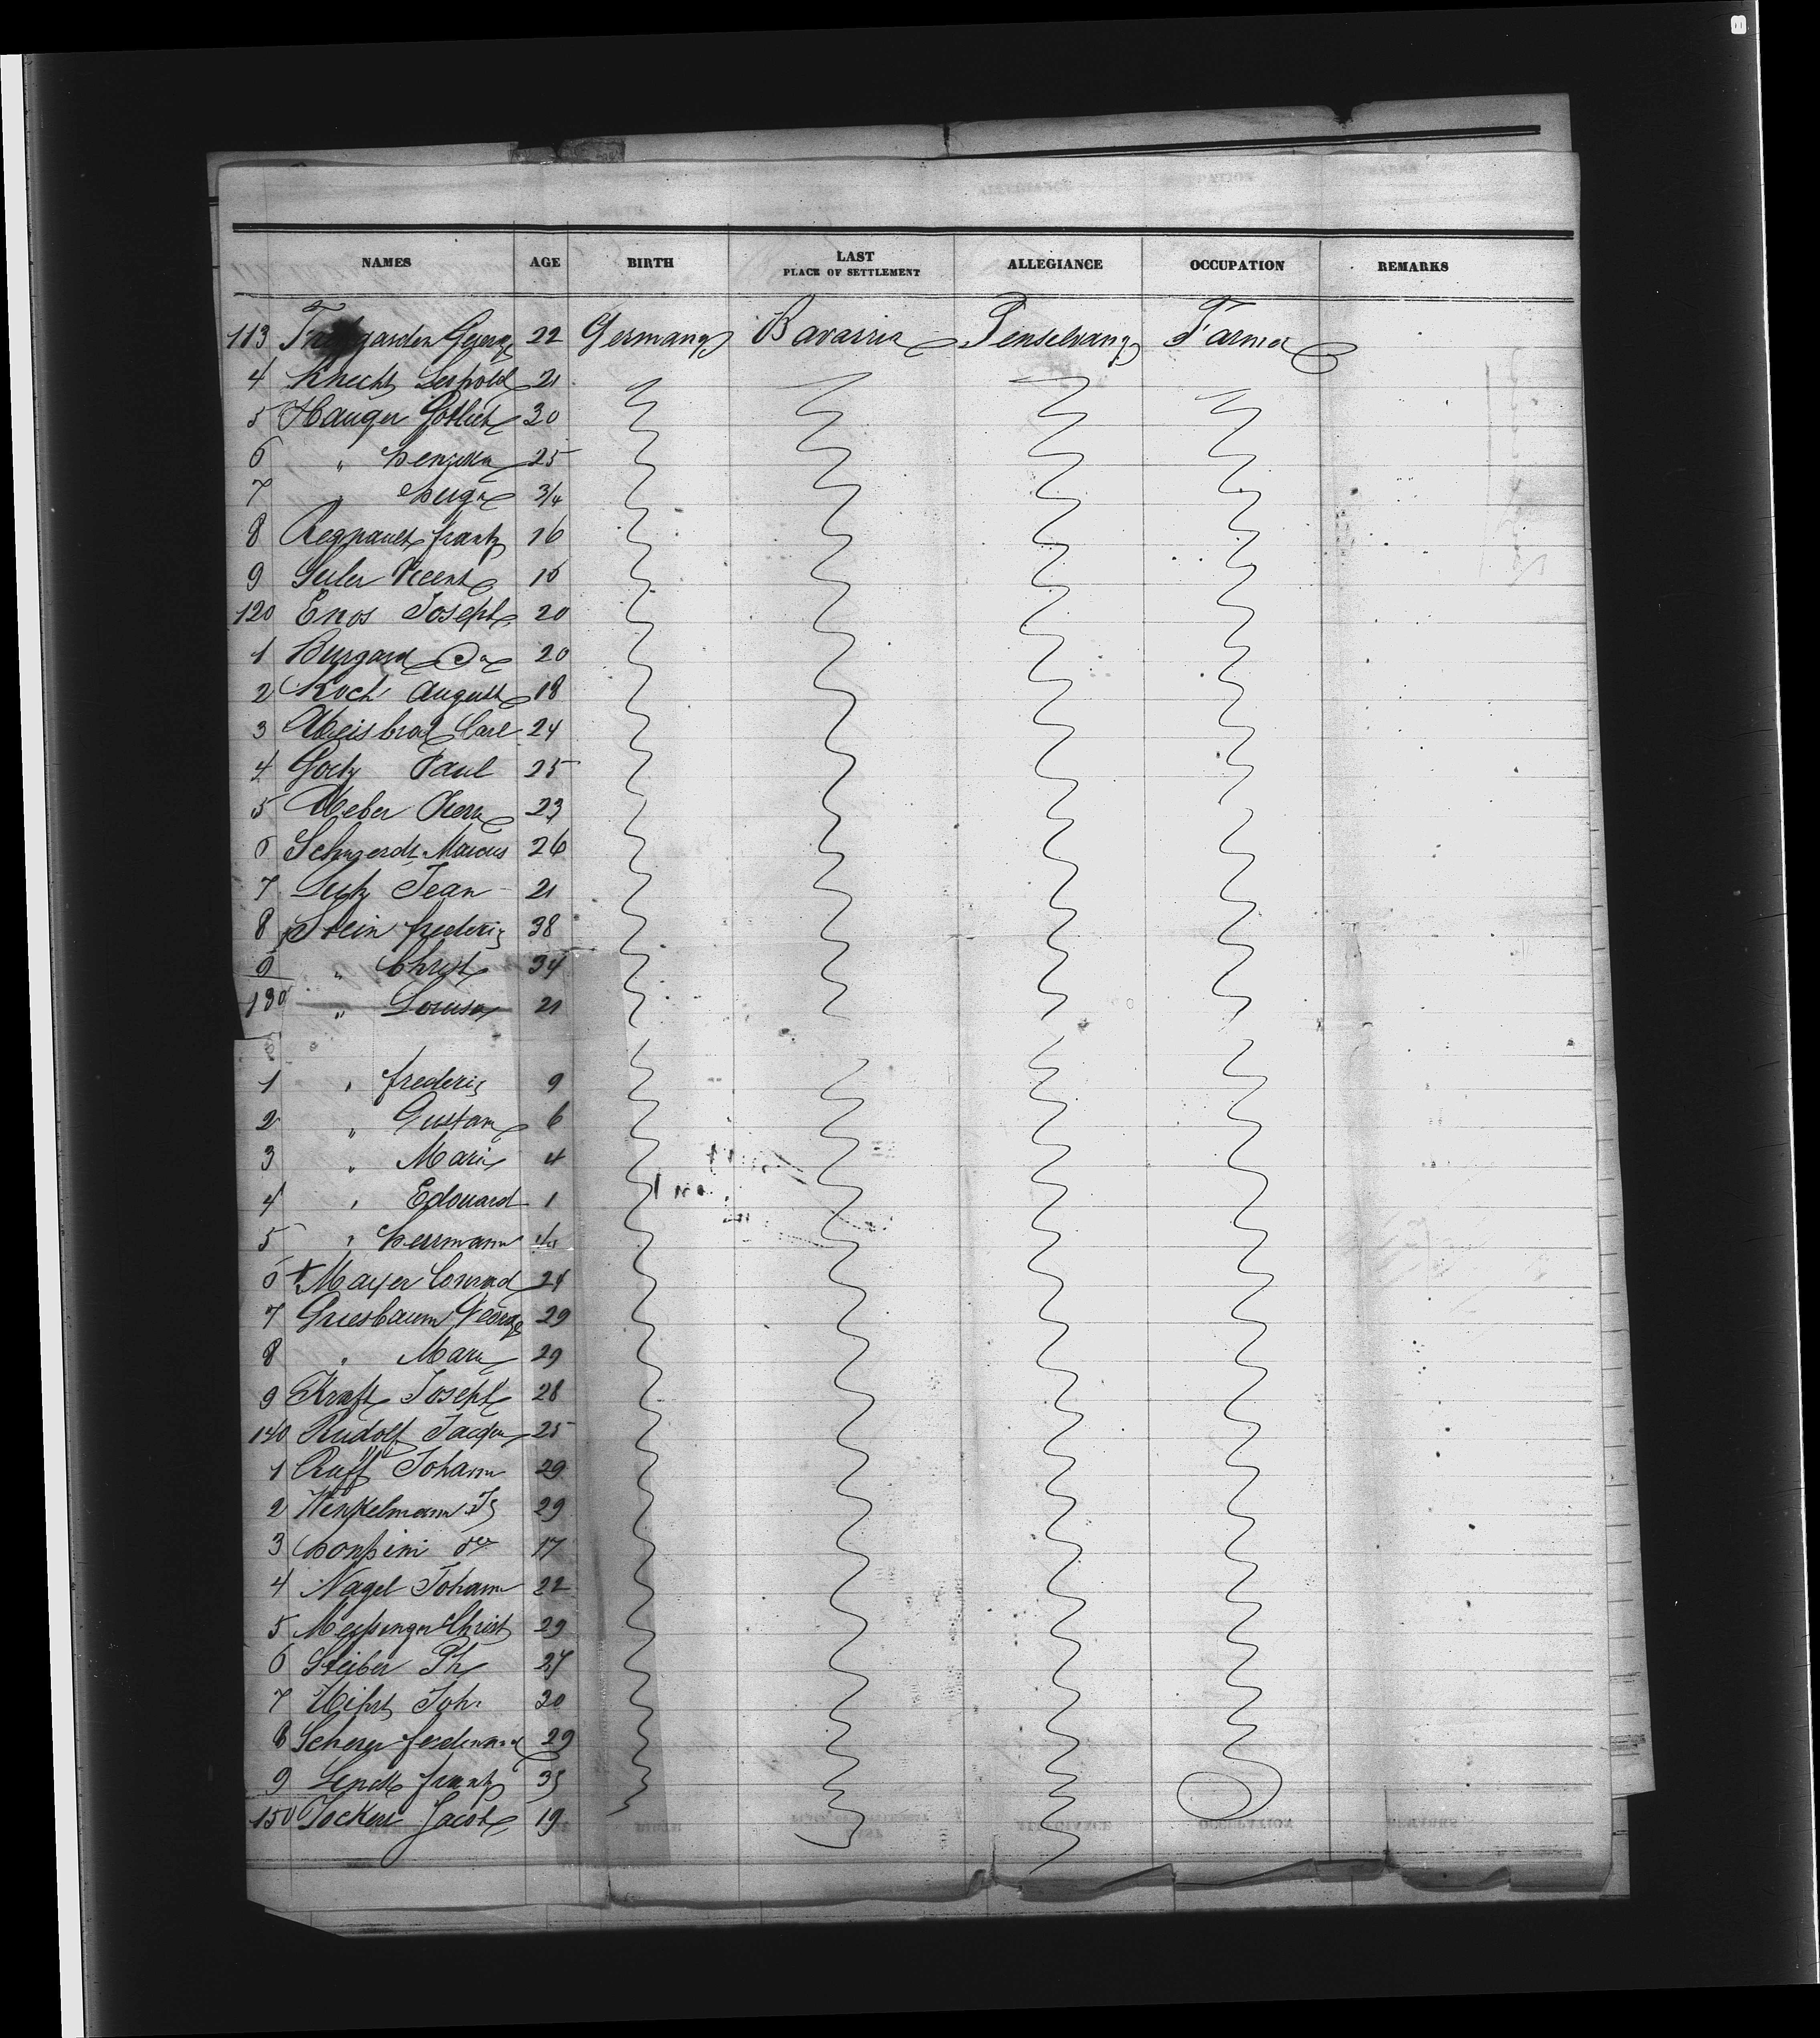 NAMES AGE BIRTH LAST PLACE OF SETTLEMENT ALLEGIANCE OCCUPATION REMARKS
113 22 Germany Bavarria Penselvany Farmer
4 Knecht Leopold 21
5 Hauger Gotlieb 30
6 " 25
7 " 3/4
8 Regnault frantz 16
9 Vicent
120 Enos Joseph 20
1 Burgard 20
2 Koch August 18
3 Weisbrod Carl 24
4 Goetz Paul 25
5 Weber 23
6 Marcus 26
7 Jean 21
8 Stein frederic 38
9 " Christ 34
130 " Louisa 21
1 " frederic 9
2 " Gustave 6
3 " Marie 4
4 " Edouard 1
5 " herrmann
6 Mayer Conrad 24
7 Griesbaum George 29
8 " Marie 29
9 Kraft Joseph 28
140 Rudolf Jacque 25
1 Ruff Johann 29
2 Wenkelmann 29
3 17
4 Nagel Johann 22
5 Messinger Christ 29
6 Steiber Ph 27
7 Joh.
8 Scherer ferdinand 29
9 frantz
150 Jacob 19